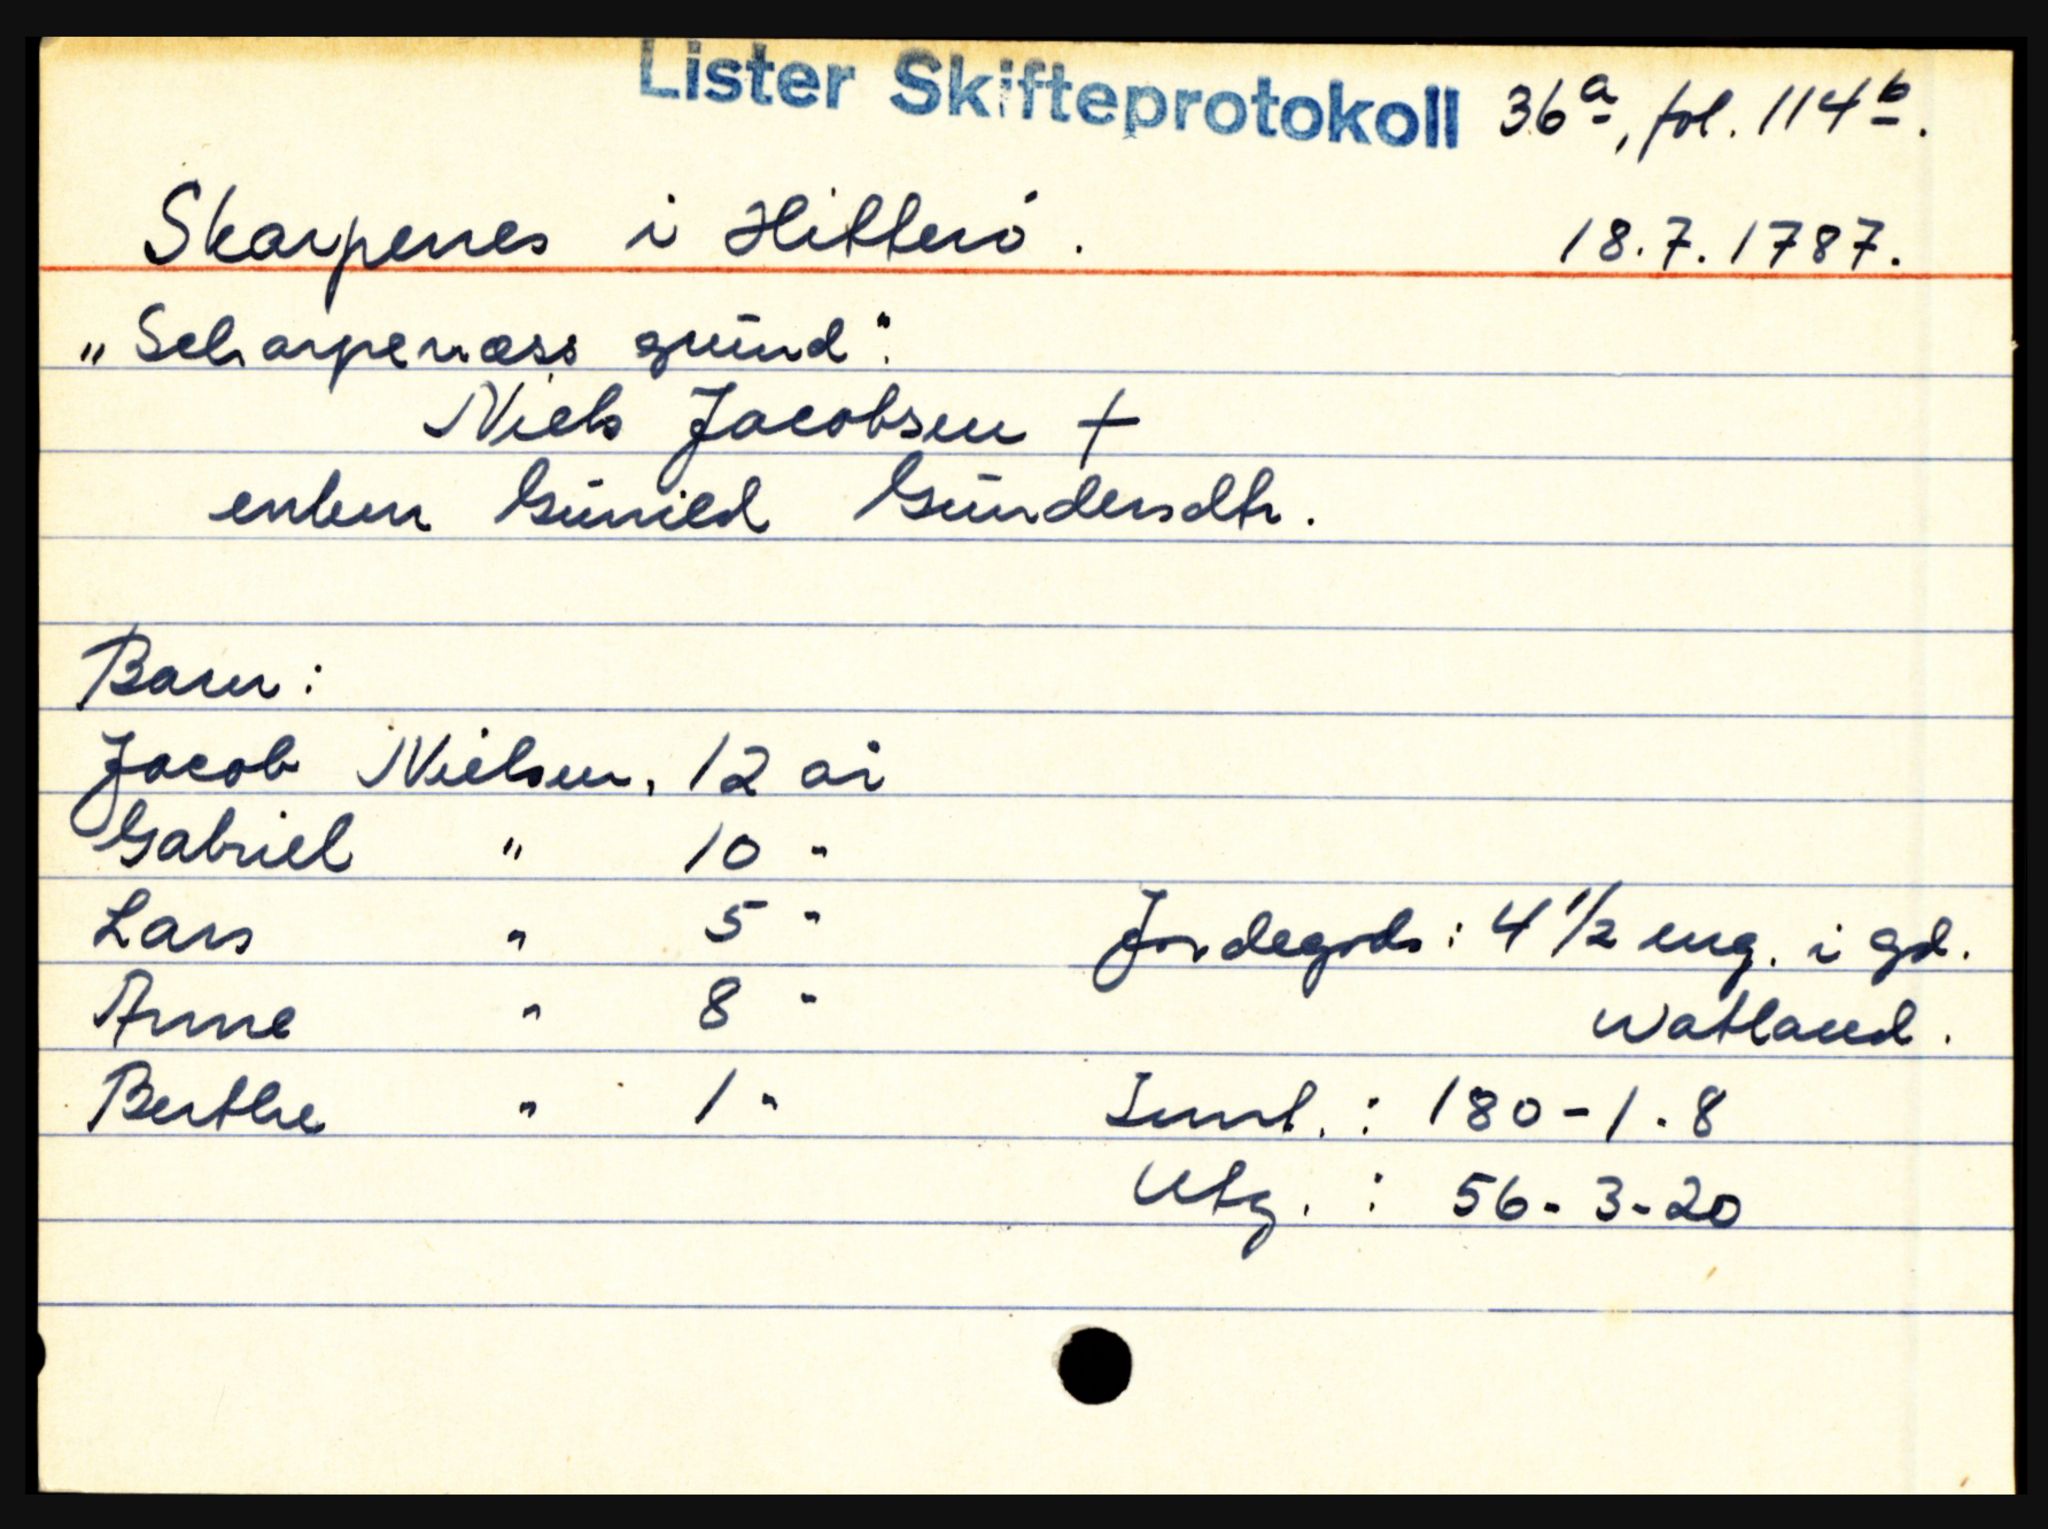 Lister Skifteprotokoll 36a, fol. 114b.
Skarpenes i Hitterø. 18.7.1787.
„Scharpenæss grund".
Niels Jacobsen +
enken Gunild Gundersdtr.
Barn:
Jacob Nielsen, 12 år
Gabriel " 10 "
Lars " 5 "
Jordegods: 4 1/2 eng. i gd.
Anne " 8 "
Watland.
Berthe " 1 "
Innt. : 180-1-8
Utg. : 56-3-20